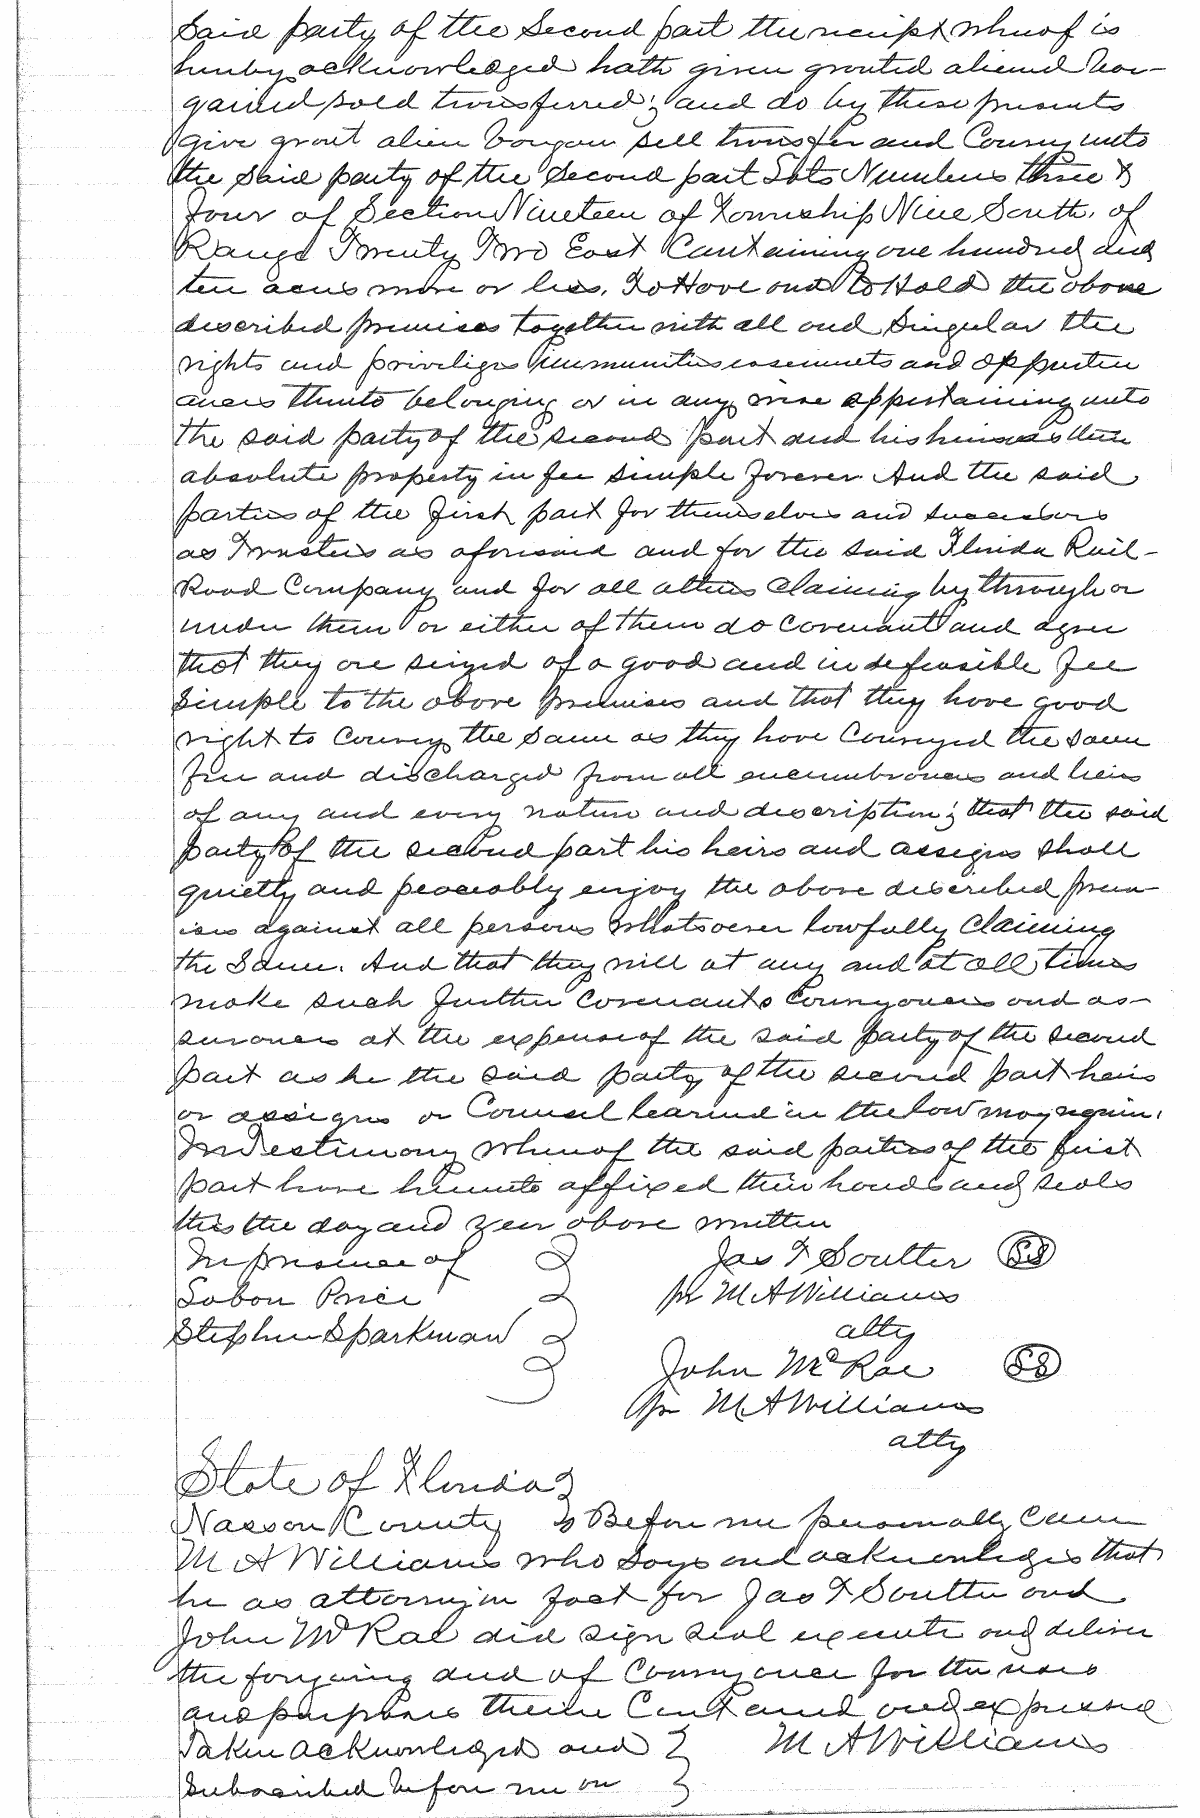 Said party of the Second part the receipt whereof is
hereby acknowledged hath given granted aliened bar-
gained sold transferred; and do by these presents
give grant alien bargain sell transfer and Convey unto
the said party of the Second part Lots Numbers three &
four of Section Nineteen of Township Nine South, of
Range Twenty Two East Containing one hundred and
ten acres more or less. To Have and to Hold the above
described premises together with all and Singular the
rights and priviliges immunities easements and appurten
ances thereto belonging or in any wise appertaining unto
the said party of the second part and his heirs as their
absolute property in fee simple forever. And the said
parties of the first part for themselves and successors
as Trustees as aforesaid and for the said Florida Rail-
Road Company and for all others claiming by through or
under them or either of them do covenant and agree
that they are seized of a good and indefeasible fee
simple to the above premises and that they have good
right to convey the same as they have Conveyed the same
free and discharged from all encumbrances and liens
of any and every nature and description; that the said
party of the second part his heirs and assigns shall
quietly and peaceably enjoy the above described prem-
ises against all persons whatsoever lawfully claiming
the same. And that they will at any and at all times
make such further covenants conveyances and as-
surances at the expense of the said party of the second
part as he the said party of the second part heirs
or assigns or Counsel learned in the law may require.
In Testimony whereof the said parties of the first
part have hereunto affixed their hands and seals
this the day and year above written
In presence of Jas T Soutter SS
Sabon Price pr M A Williams
Stephen Sparkman atty
John McRae SS
pr M A Williams
atty
State of Florida
Nassau County } Before me personally came
M A Williams who says and acknowledges that
he as attorney in fact for Jas T Soutter and
John McRae did sign seal execute and deliver
the forgoing deed of conveyance for the uses
and purposes therein Contained and expressed
Taken acknowledged and } M A Williams
Subscribed before me on }